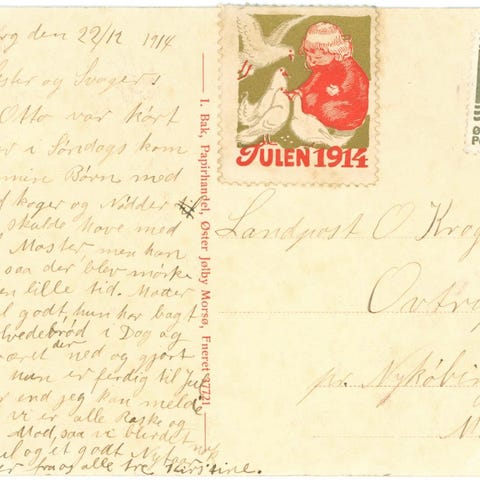 rg den 22/12 1914
ster og Svoger
Otto var kört
r i Söndags kom
min Börn med
d koger og Nödder til
skulde have med
Moster, men han
saa der blev mörke
en lille tid. Moder
l godt, hun har bagt
lvedebröd i Dag og
været der ned og gjort
hun er ferdig til Jul
r end jeg kan melde
vi er alle Raske og
Mod, saa vi
ul og et godt Nytaar
er fra os alle tre Kirstine.
I. Bak, Papirhandel, Øster Jølby Morsø, Eneret 37721
JULEN 1914
Landpost O Krog
pr. Nykøbin
M